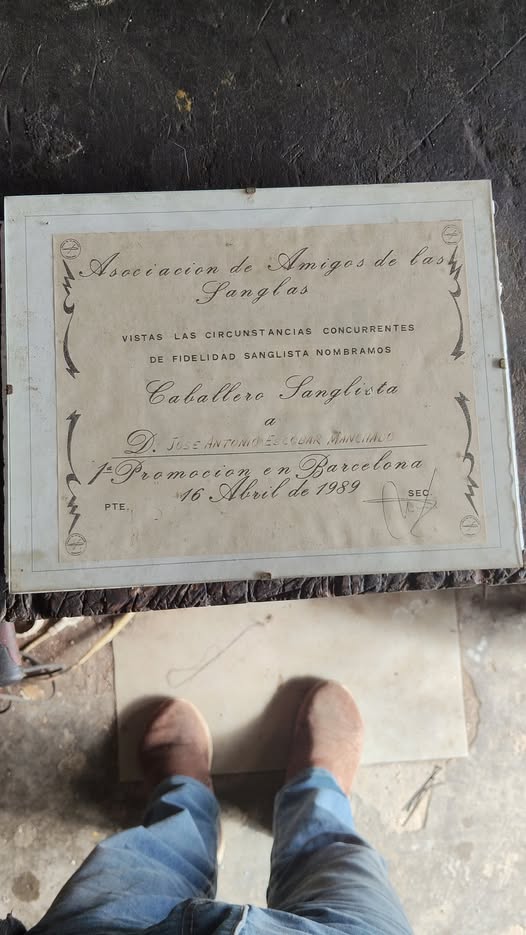 Asociacion de Amigos de las
Sanglas
VISTAS LAS CIRCUNSTANCIAS CONCURRENTES
DE FIDELIDAD SANGLISTA NOMBRAMOS
Caballero Sanglista
a
D. JOSE ANTONIO ESCOBAR MANCHADO
1ª Promocion en Barcelona
16 Abril de 1989
PTE. SEC.